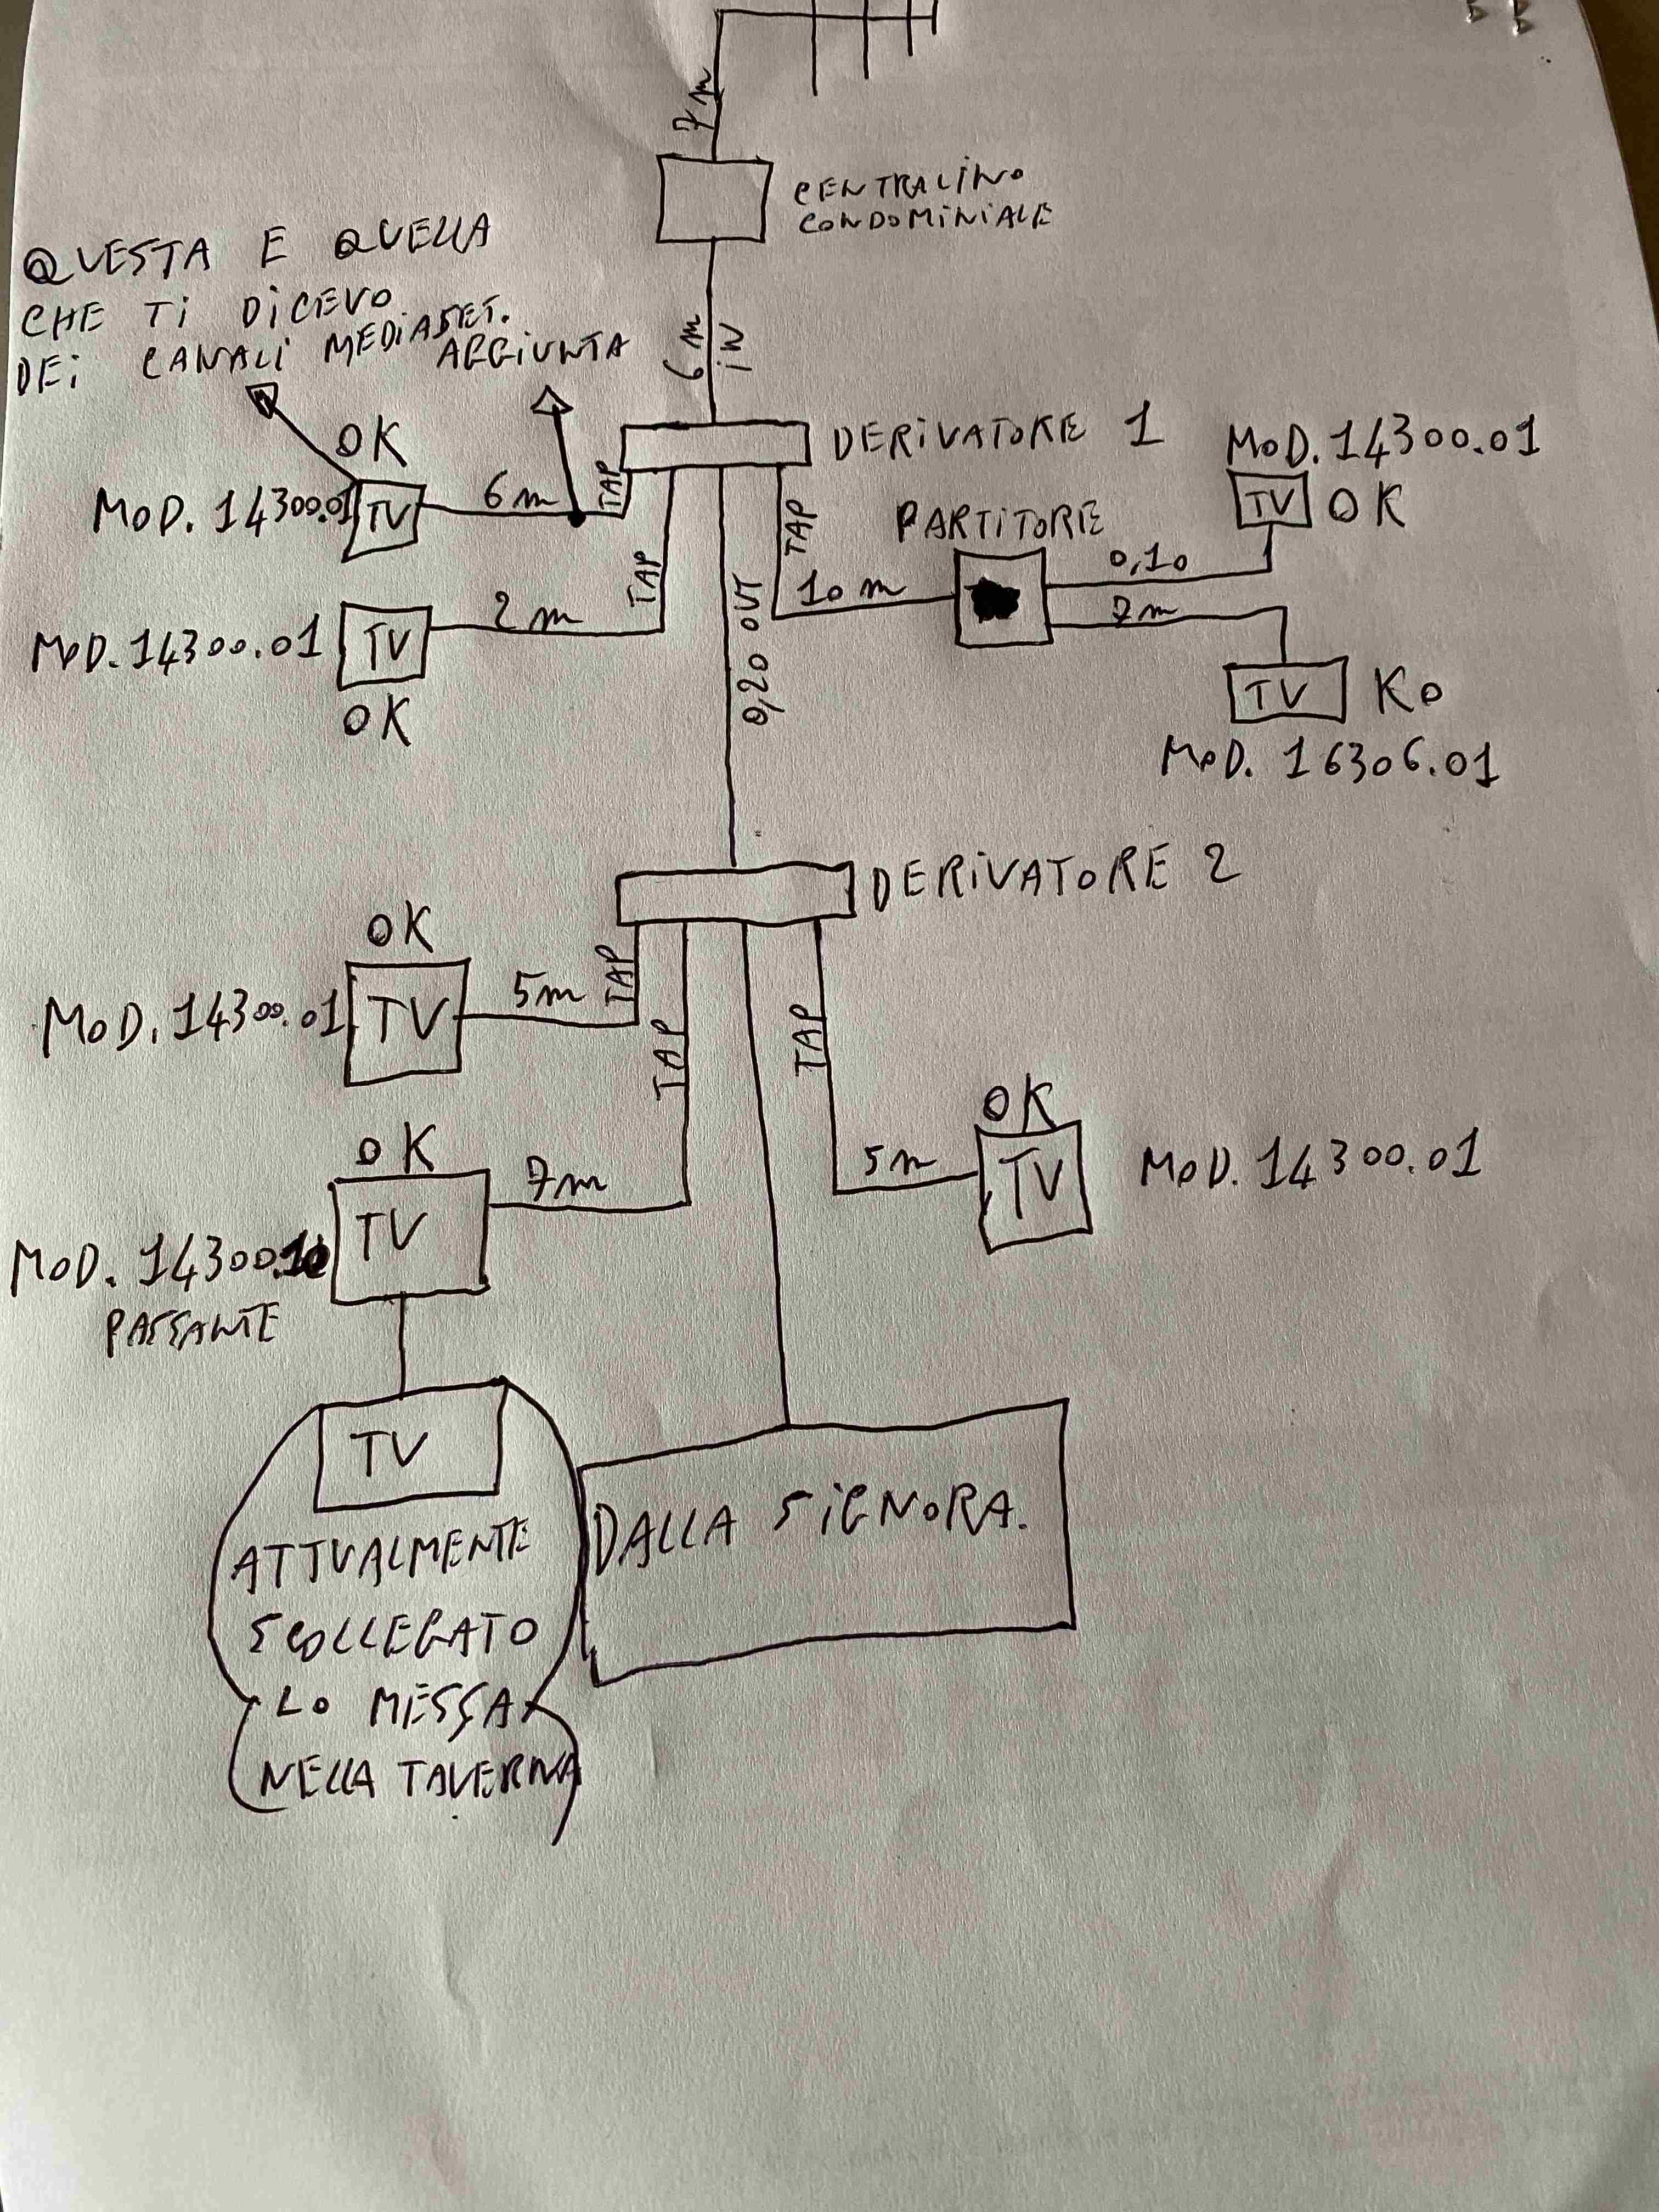 7 m
CENTRALINO
CONDOMINIALE
QUESTA E QUELLA
CHE Ti DiCEVO
DEi CANALi MEDIASET.
AGGIUNTA
6 m
iN
DERiVATORE 1
OK
MOD. 14300.01
TV
6 m
TAP
MOD. 14300.01
TV
OK
PARTiTORE
TAP
10 m
0,10
7m
TAP
2 m
MOD. 14300.01
TV
OK
0,20 OUT
TV
KO
MOD. 16306.01
DERiVATORE 2
OK
MOD. 14300.01
TV
5m
TAP
TAP
TAP
OK
TV
7m
MOD. 14300
PASSANTE
OK
5m
TV
MOD. 14300.01
TV
ATTUALMENTE
SCOLLEGATO
LO MESSA
NELLA TAVERNA
DALLA SiGNORA.